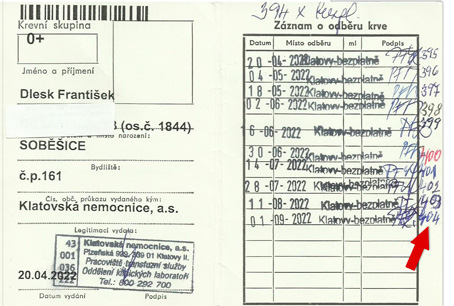 Krevní skupina
0+
Jméno a příjmení
Dlesk František
(os.č. 1844)
místo narození:
SOBĚŠICE
Bydliště:
č.p.161
Čís. obč. průkazu vydaného kým:
Klatovská nemocnice, a.s.
Legitimaci vydala:
43 Klatovská nemocnice, a.s.
001 Plzeňská 929, 339 01 Klatovy II.
036 Pracoviště transfuzní služby
222 Oddělení klinických laboratoří
Tel.: 800 292 700
20.04.2022
Datum vydání Podpis
394 x
Záznam o odběru krve
Datum Místo odběru ml Podpis
20-04-2022 Klatovy-bezplatně 395
04-05-2022 Klatovy-bezplatně 396
18-05-2022 Klatovy-bezplatně 397
02-06-2022 Klatovy-bezplatně 398
16-06-2022 Klatovy-bezplatně 399
30-06-2022 Klatovy-bezplatně 400
14-07-2022 Klatovy-bezplatně 401
28-07-2022 Klatovy-bezplatně
11-08-2022 Klatovy-bezplatně 403
01-09-2022 Klatovy-bezplatně 404